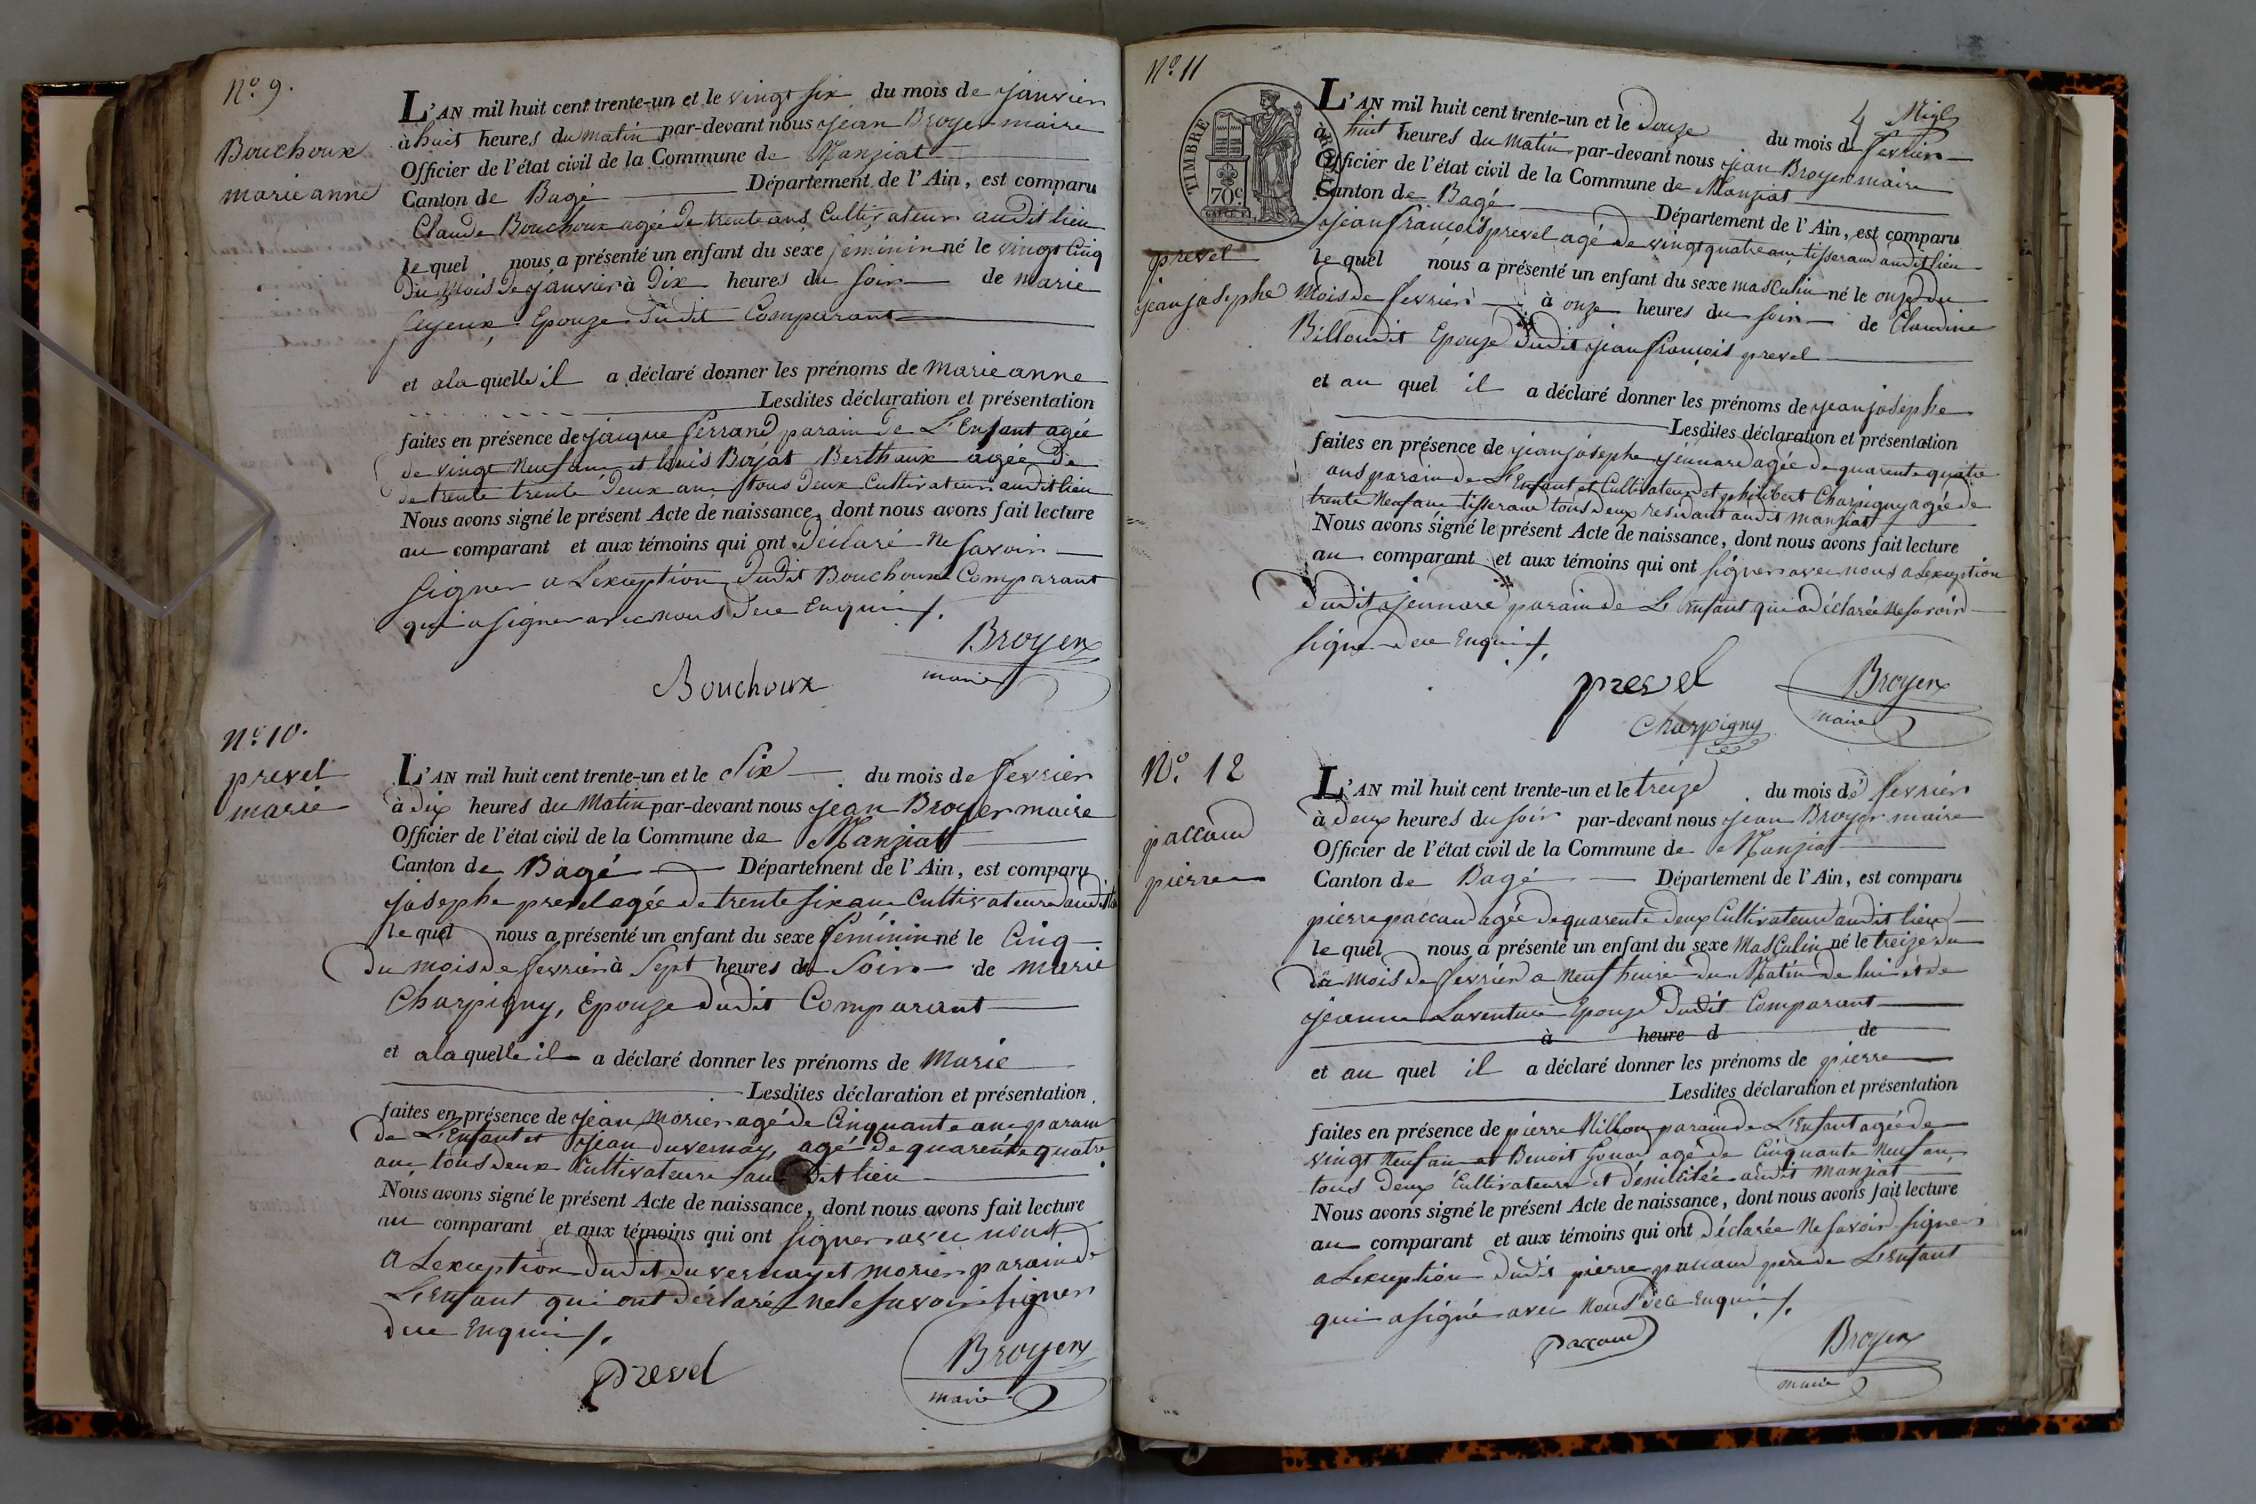 N.º 9.
Bouchoux
marie anne
L'AN mil huit cent trente-un et le vingt six du mois de janvier
à huit heures du matin par-devant nous jean Broyer maire
Officier de l'état civil de la Commune de Manziat
Canton de Bagé Département de l'Ain, est comparu
Claude Bouchoux agée de trente ans Cultivateur audit lieu
le quel nous a présenté un enfant du sexe féminin né le vingt Cinq
du mois de janvier à Dix heures du soir de marie
feyeux, Epouze dudit Comparant
et a la quelle il a déclaré donner les prénoms de marie anne
Lesdites déclaration et présentation
faites en présence de jaque ferrand parain de L'Enfant agée
de vingt Neuf ans et louis Borjat Berthoux agée de
de trente trente deux ans tous deux Cultivateurs audit lieu
Nous avons signé le présent Acte de naissance, dont nous avons fait lecture
au comparant et aux témoins qui ont déclaré Ne savoir
signer a Lexception dudit Bouchoux Comparant
qui a signer avec nous de ce Enquis /.
Broyer
maire
Bouchoux
N.º 10.
prevel
marie
L'AN mil huit cent trente-un et le Six du mois de fevrier
à dix heures du Matin par-devant nous jean Broyer maire
Officier de l'état civil de la Commune de Manziat
Canton de Bagé Département de l'Ain, est comparu
josephe prevel agée de trente six ans Cultivateur audit lieu
le quel nous a présenté un enfant du sexe féminin né le Cinq
du mois de fevrier à Sept heures du Soir de marie
Charpigny, Epouze dudit Comparant
et a la quelle il a déclaré donner les prénoms de Marie
Lesdites déclaration et présentation
faites en présence de jean morier agé de Cinquante ans parain
de L'Enfant et jean duvernay, agé de quarente quatre
ans tous deux Cultivateurs sau dit lieu
Nous avons signé le présent Acte de naissance, dont nous avons fait lecture
au comparant et aux témoins qui ont signer avec nous
a Lexception dudit duvernay et morier parain de
L'Enfant qui ont déclaré ne le savoir signer
de ce Enquis /.
prevel
Broyer
maire
N.º 11
4 Migl
TIMBRE ROYAL
70c
prevel
jean josephe
L'AN mil huit cent trente-un et le Douze du mois de fevrier
à huit heures du matin par-devant nous jean Broyer maire
Officier de l'état civil de la Commune de Manziat
Canton de Bagé Département de l'Ain, est comparu
jean françois prevel agé de vingt quatre ans tisserand audit lieu
le quel nous a présenté un enfant du sexe masculin né le onze du
Mois de fevrier à onze heures du soir de Claudine
Billoudit Epouze dudit jean françois prevel
et au quel il a déclaré donner les prénoms de jean josephe
Lesdites déclaration et présentation
faites en présence de jean josephe jennard agée de quarente quatre
ans parain de L'Enfant et Cultivateur et philibert Charpigny agée de
trente Neuf ans tisserand tous deux residant audit manziat
Nous avons signé le présent Acte de naissance, dont nous avons fait lecture
au comparant et aux témoins qui ont signer avec nous a Lexception
dudit jennare parain de L'Enfant qui a déclarée Ne savoir
signer de ce Enquis /.
prevel
Broyer
maire
Charpigny
N.º 12
paccaud
pierre
L'AN mil huit cent trente-un et le treize du mois de fevrier
à deux heures du soir par-devant nous jean Broyer maire
Officier de l'état civil de la Commune de Manziat
Canton de Bagé Département de l'Ain, est comparu
pierre paccaud agée de quarente deux Cultivateur audit lieu
le quel nous a présenté un enfant du sexe Masculin né le treize du
du mois de fevrier a Neuf heure du Matin de lui et de
jeanne Laventure Epouze dudit Comparant
à heure d de
et au quel il a déclaré donner les prénoms de pierre
Lesdites déclaration et présentation
faites en présence de pierre Nillon parain de L'Enfant agée de
vingt Neuf ans et Benoit Gonod agé de Cinquante Neuf ans
tous deux Cultivateurs et domicilée audit manziat
Nous avons signé le présent Acte de naissance, dont nous avons fait lecture
au comparant et aux témoins qui ont déclarée Ne savoir signer
a Lexception dudit pierre paccaud père de L'Enfant
qui a signé avec Nous de ce Enquis /.
paccaud
Broyer
maire